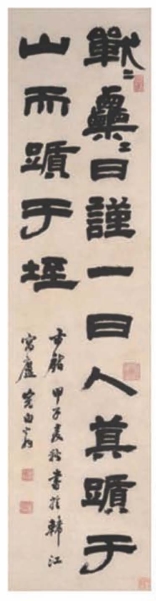 戰〻㮚〻日謹一日人莫躓于
山而躓于垤
甲子書於韓江
寓廬